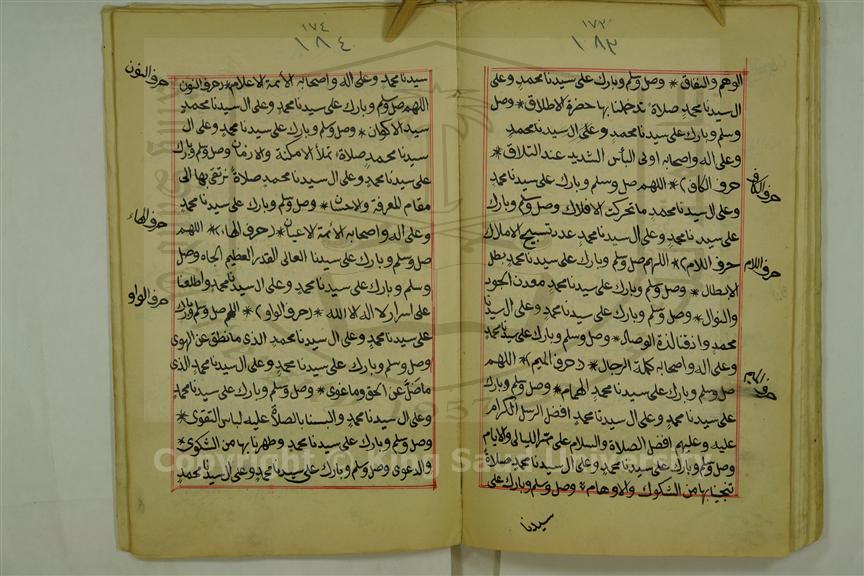 ١٧٣
١٨٣
الوهم والنفاق * وصل وسلم وبارك على سيدنا محمد وعلى
ال سيدنا محمد صلاة تدخلنا بها حضرة الاطلاق * وصل
وسلم وبارك على سيدنا محمد وعلى ال سيدنا محمد
وعلى اله واصحابه اولى البأس الشديد عند التلاق *
(حرف الكاف) * اللهم صل وسلم وبارك على سيدنا محمد
وعلى ال سيدنا محمد ما تحركت الافلاك وصل وسلم وبارك
على سيدنا محمد وعلى ال سيدنا محمد عدد تسبيح الاملاك
(حرف اللام) * اللهم صل وسلم وبارك على سيدنا محمد بطل
الابطال * وصل وسلم وبارك على سيدنا محمد معدن الجود
والنوال * وصل وسلم وبارك على سيدنا محمد وعلى ال سيدنا
محمد واذقنا لذة الوصال * وصل وسلم وبارك على سيدنا محمد
وعلى اله واصحابه كملة الرجال * (حرف الميم) * اللهم
صل وسلم وبارك على سيدنا محمد الهمام * وصل وسلم وبارك
على سيدنا محمد وعلى ال سيدنا محمد افضل الرسل الكرام
عليه وعليهم افضل الصلاة والسلام على ممر الليالى والايام
وصل وسلم وبارك على سيدنا محمد وعلى ال سيدنا محمد صلاة
تنجينا بها من الشكوك والاوهام * وصل وسلم وبارك على
سيدنا
حرف الكاف
حرف اللام
حرف الميم
١٧٤
١٨٤
سيدنا محمد وعلى اله واصحابه الأئمة الاعلام * (حرف النون
اللهم صل وسلم وبارك على سيدنا محمد وعلى ال سيدنا محمد
سيد الاكوان * وصل وسلم وبارك على سيدنا محمد وعلى ال
سيدنا محمد صلاة تملأ الامكنة والازمان وصل وسلم وبارك
على سيدنا محمد وعلى ال سيدنا محمد صلاة نرتقى بها الى
مقام المعرفة والاحسان * وصل وسلم وبارك على سيدنا محمد
وعلى اله واصحابه الأئمة الاعيان * (حرف الهاء) * اللهم
صل وسلم وبارك على سيدنا العالى القدر العظيم الجاه وصل
وسلم وبارك على سيدنا محمد وعلى ال سيدنا محمد واطلعنا
على اسرار لا اله الا الله * (حرف الواو) * اللهم صل وسلم وبارك
على سيدنا محمد وعلى ال سيدنا محمد الذى ما نطق عن الهوى
وصل وسلم وبارك على سيدنا محمد وعلى ال سيدنا محمد الذى
ما ضل عن الحق وما غوى * وصل وسلم وبارك على سيدنا محمد
وعلى ال سيدنا محمد والبسنا بالصلاة عليه لباس التقوى *
وصل وسلم وبارك على سيدنا محمد وطهرنا بها من الشكوى *
والدعوى وصل وسلم وبارك على سيدنا محمد وعلى ال سيدنا محمد
حرف النون
حرف الهاء
حرف الواو
Copyright © King Saud University
1957